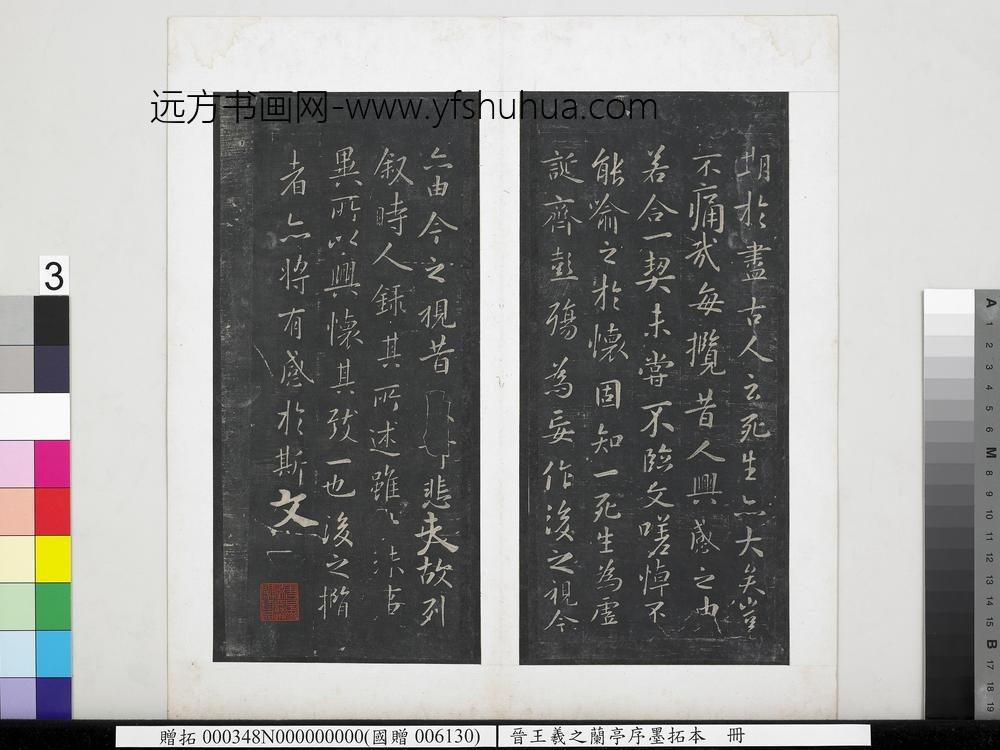 远方书画网-www.yfshuhua.com
期於盡古人云死生亦大矣豈
不痛哉每攬昔人興感之由
若合一契未嘗不臨文嗟悼不
能喻之於懷固知一死生為虛
誕齊彭殤為妄作後之視今
亦由今之視昔悲夫故列
叙時人錄其所述雖
異所以興懷其致一也後之攬
者亦將有感於斯文
3
A
1
2
3
4
5
6
M
8
9
10
11
12
13
14
15
B
17
18
19
贈拓 000348N000000000(國贈 006130)
晉王羲之蘭亭序墨拓本 冊